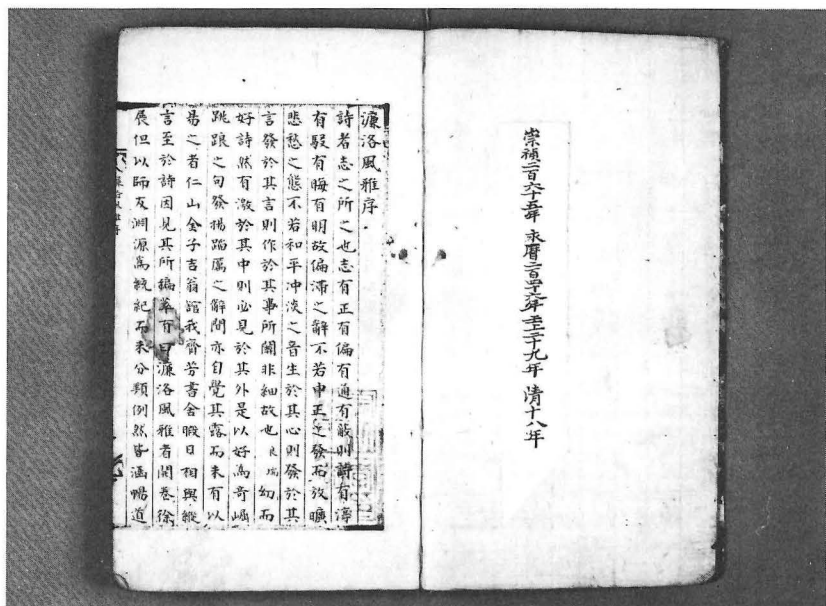 崇禎二百六十五年 永曆二百四十六年 主上二十九年 清十八年
濂洛風雅序
詩者志之所之也志有正有偏有通有蔽則詩有淳
有駁有晦有明故偏滯之辭不若中正之發而放曠
悲愁之態不若和平冲淡之音生於其心則發於其
言發於其言則作於其事所關非細故也良瑞幼而
好詩然有激於其中則必見於其外是以好爲奇崛
跳踉之句發揚蹈厲之辭間亦自覺其露而未有以
易之者仁山金子吉翁館我齊芳書舍暇日相與縱
言至於詩因見其所編萃有曰濂洛風雅者開卷徐
展但以師友淵源爲統紀而未分類例然皆涵暢道